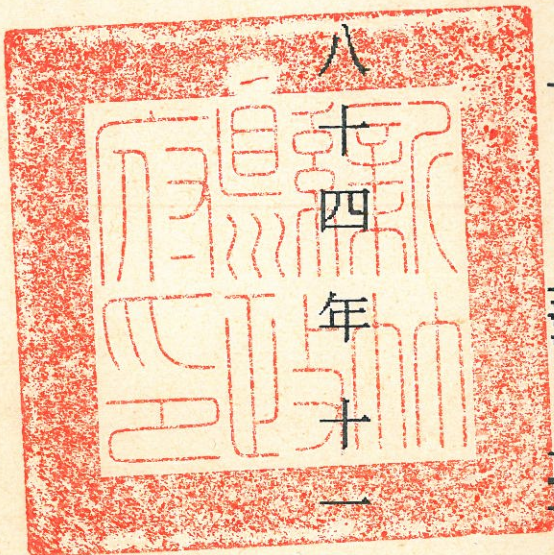 八十四年十一
新竹
縣政
府印